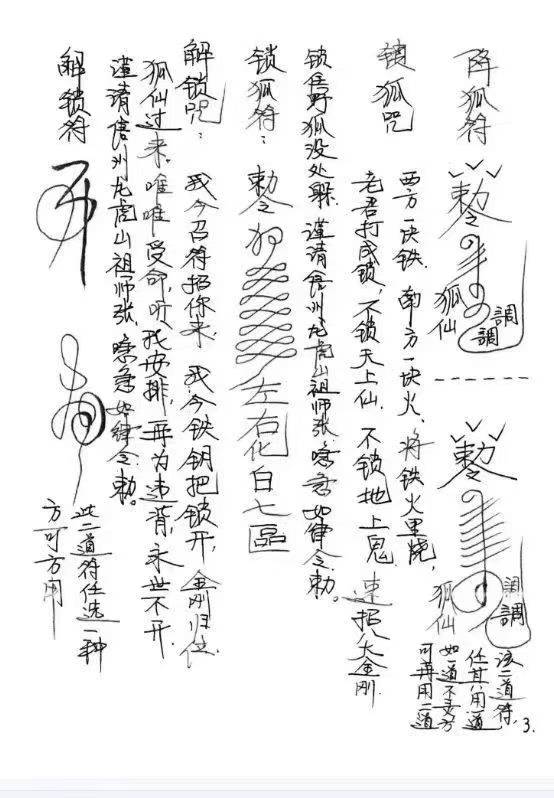 降狐符
勅令
狐仙
調
調
勅令
狐仙
調
調
该二道符,
任其用一道
如一道不灵方
可再用二道
3.
锁狐咒
西方一块铁, 南方一块火, 将铁火里烧,
老君打成锁, 不锁天上仙, 不锁地上鬼, 速招八大金刚
锁住野狐没处躲, 谨请信州龙虎山祖师张, 嗯急如律令, 勅。
锁狐符: 勅令
左右化白七區
解锁咒: 我今召符招你来, 我今铁钥把锁开, 金刚归位,
狐仙过来, 唯唯受命, 听我安排, 再为违背, 永世不开,
谨请信州龙虎山祖师张, 嗯急如律令, 勅。
解锁符
此二道符任选一种
方可方用